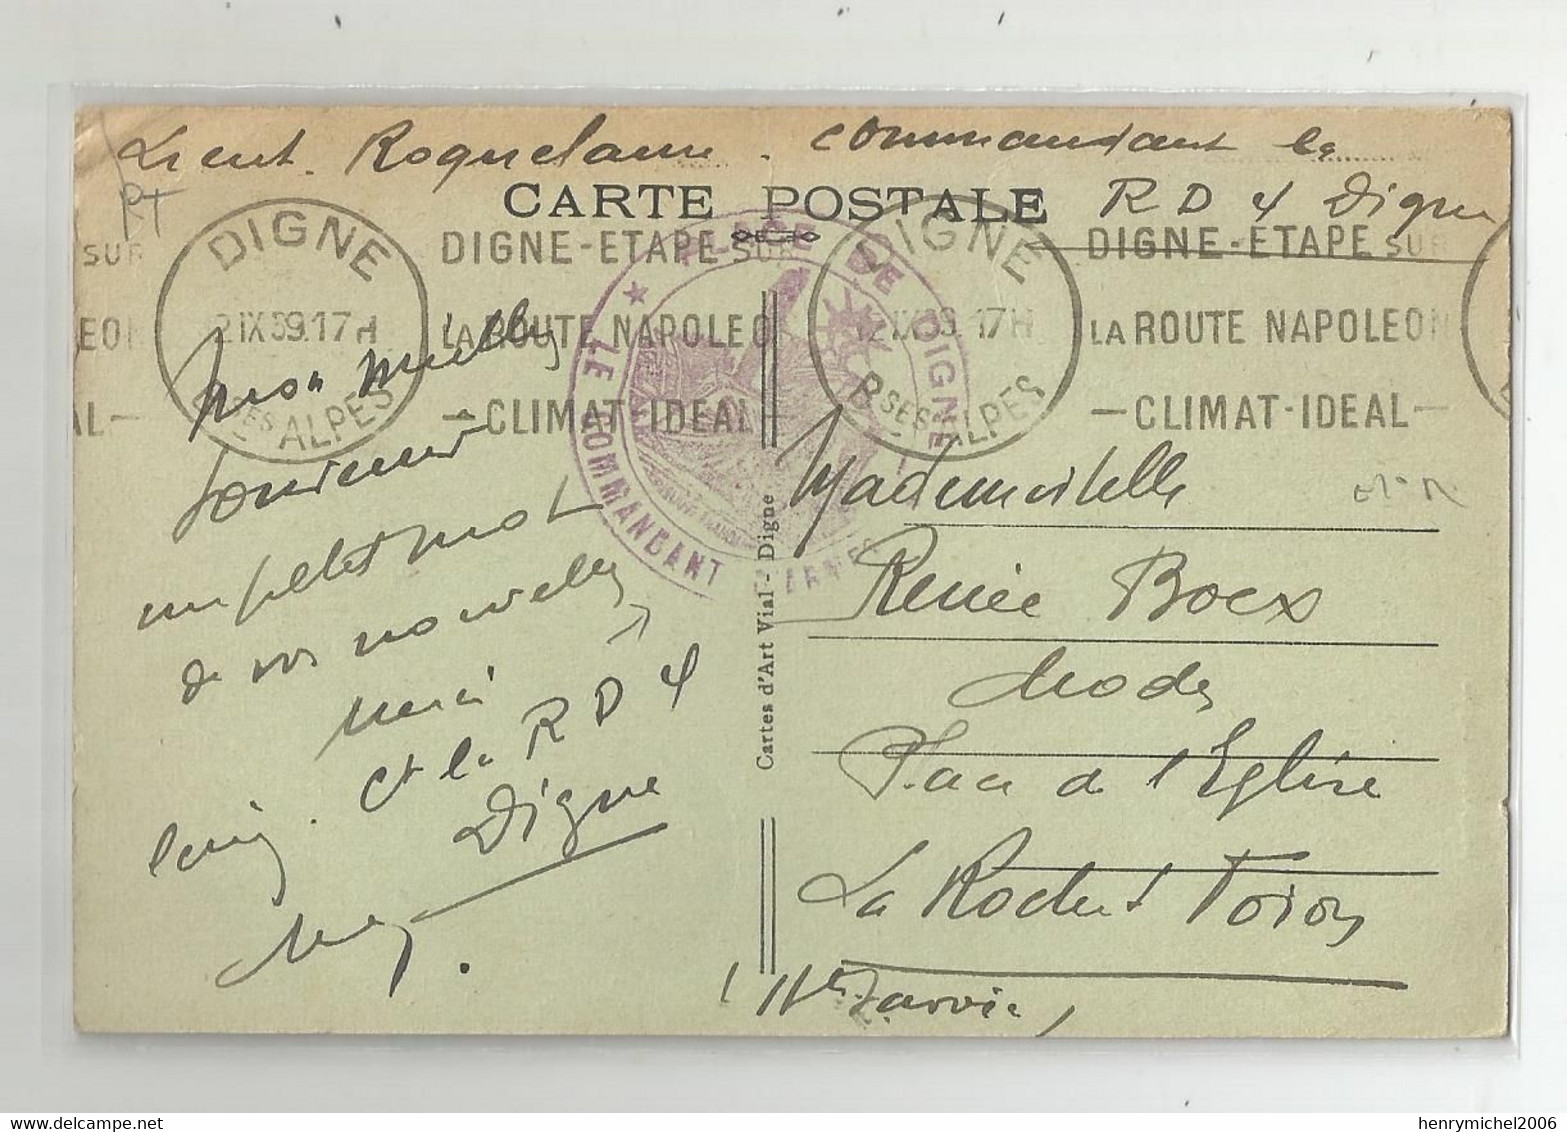 Lieut. Roquelaure. commandant le
CARTE POSTALE
R D 4 Digne
DIGNE
2 IX 39 17H
BSES ALPES
DIGNE-ETAPE SUR
LA ROUTE NAPOLEON
—CLIMAT-IDEAL—
DIGNE
2 IX 39 17H
BSES ALPES
DIGNE-ETAPE SUR
LA ROUTE NAPOLEON
—CLIMAT-IDEAL—
SUR
EON
AL—
PLACE DE DIGNE
LE COMMANDANT D'ARMES
Mon meilleur
souvenir
un petit mot
de vos nouvelles
merci
et le R D 4
Digne
Cartes d'Art Vial - Digne
Mademoiselle
Renée Bocx
Modes
Place de l'Eglise
La Roche s Foron
(Hte Savoie)
henrymichel2006